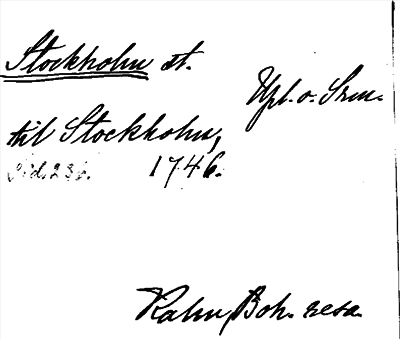 Stockholm st.
Upl. o. Srm.
till Stockholm,
Sid. 236. 1746.
Kalm, Boh. resa.